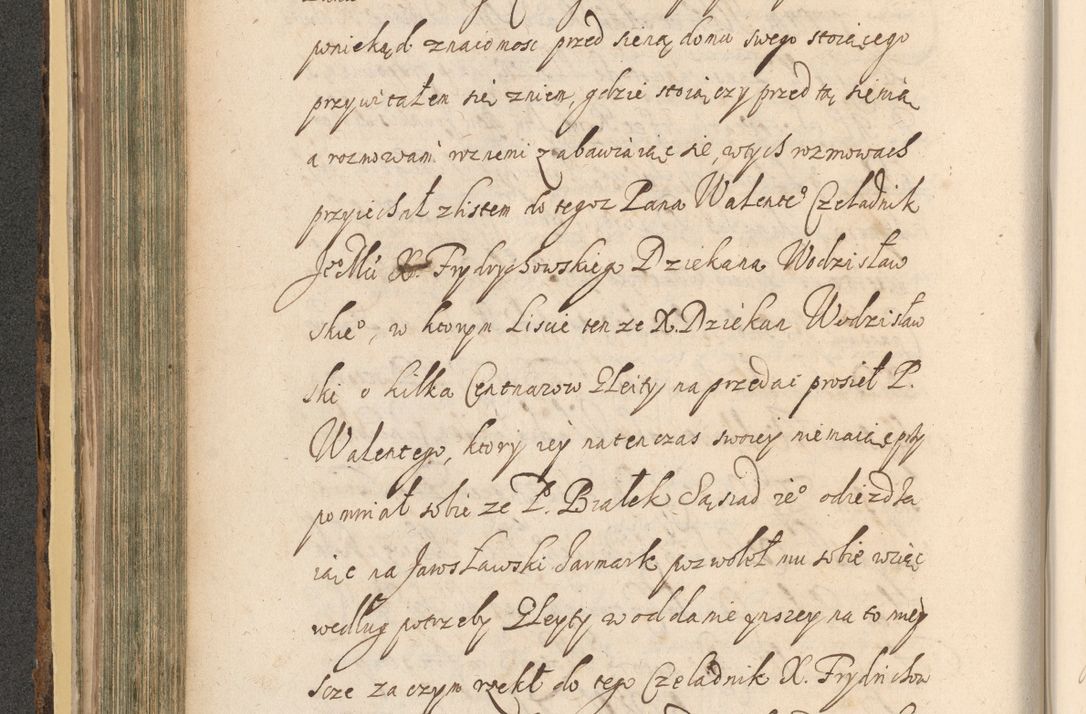 poniekąd znaiomosc przed sienią domu swego stoiącego
przywitałem się zniem, gdzie stoiączy przed tą sienią
a rozmowami roznemi zabawiaiąc się, wtych rozmowach
przyiechał zlistem do tegoz Pana Walente° Czeladnik
Je°Mći X. Frydrychowskiego Dziekana Wodzisław
skie°, w ktorym Liscie tenze X. Dziekan Wodzisław
ski o kilka Centnarow Gleity na przedai prosieł P.
Walentego, ktory iey natenczas swoiey niemaiąc przy
pomniał sobie ze P. Białek Sąsiad ie° odiezdża
iąc na Jarosławski Jarmark pozwoleł mu sobie wziąc
według potrzeby Gleyty w oddanie ynszey na to miey
sce za czym rzekł do tego Czeladnik X. Frydrichow